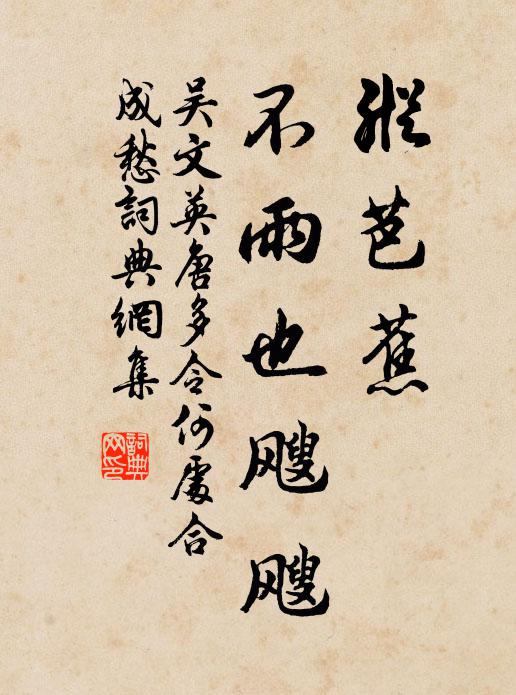 縱芭蕉
不雨也飕飕
吴文英唐多令何處合
成愁詞典網集
詞典
网印